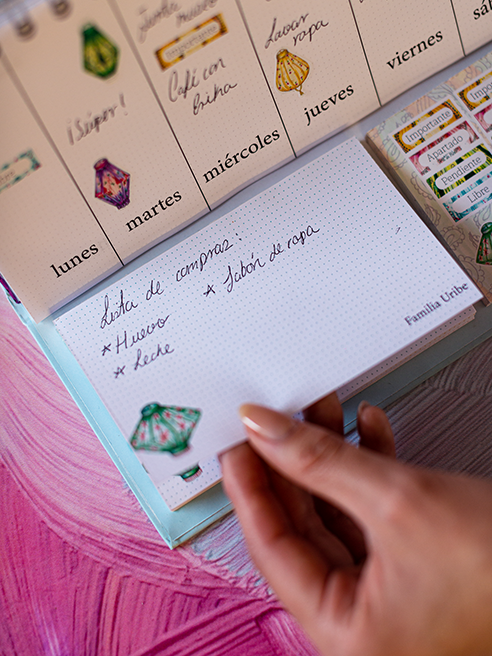 Junta museo
Importante
Café con
Erika
Lavar
ropa
¡Súper!
lunes
martes
miércoles
jueves
viernes
Importante
Apartado
Pendiente
Libre
Lista de compras:
* Huevo
* Leche
* Jabón de ropa
Familia Uribe